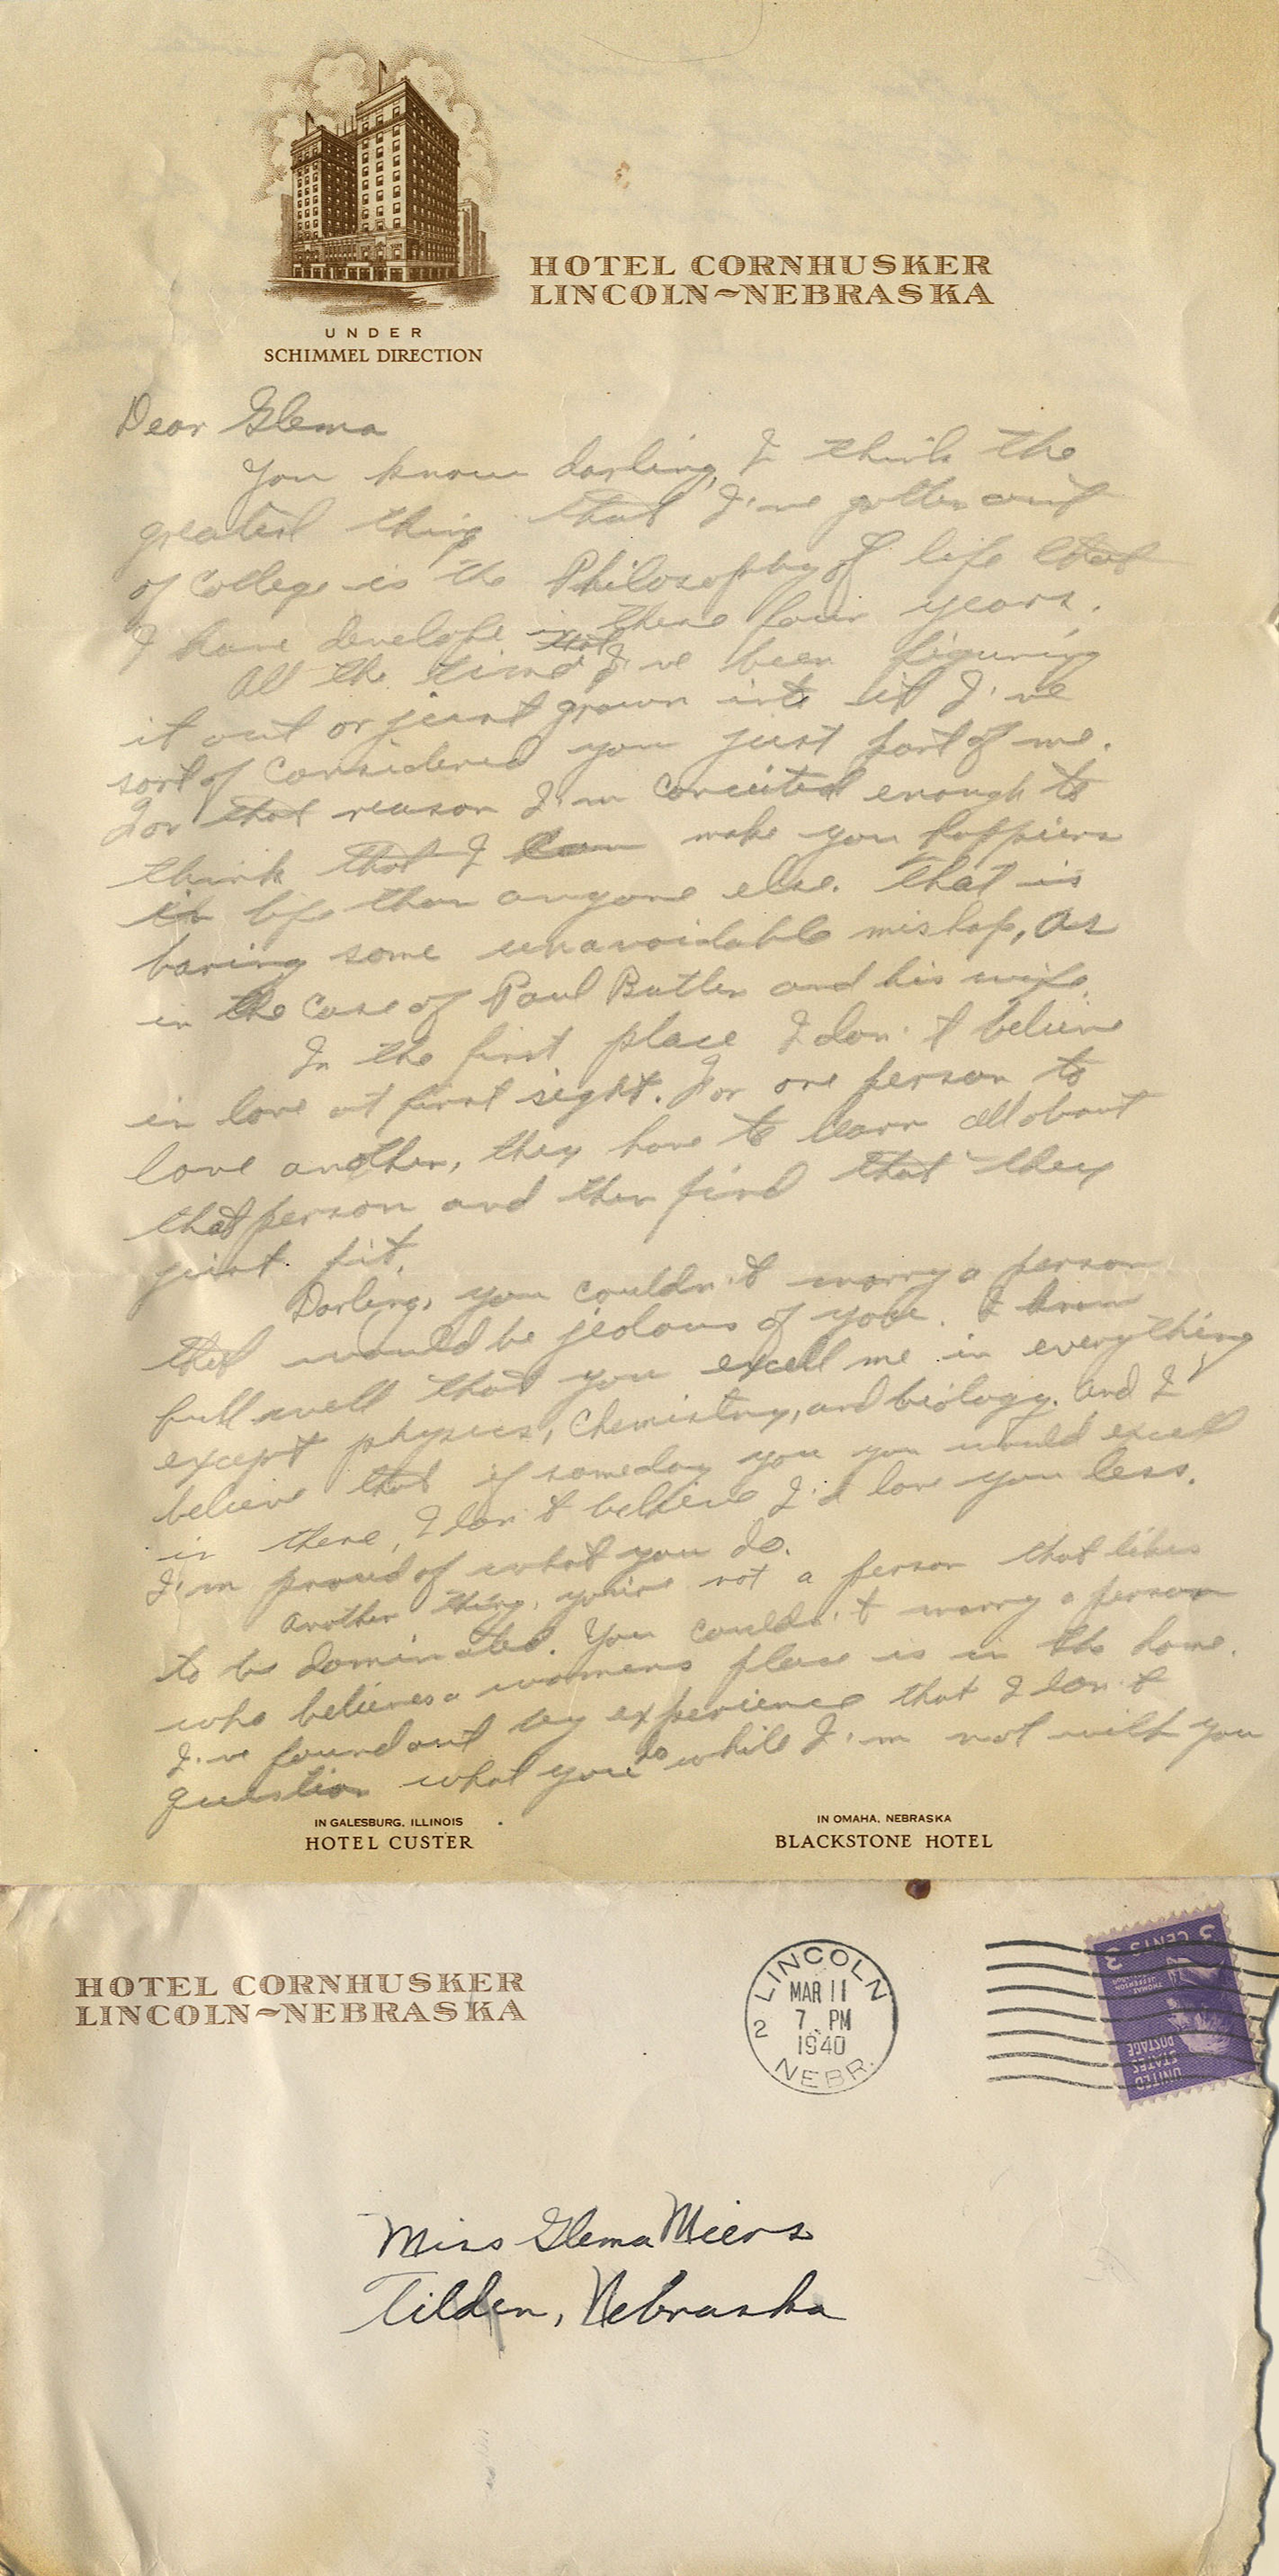 HOTEL CORNHUSKER
LINCOLN~NEBRASKA
UNDER
SCHIMMEL DIRECTION
Dear Glema
You know darling, I think the
greatest thing that I've gotten out
of College is the Philosophy of life that
I have develope in these four years.
All the time that I've been figuring
it out or just grown into it I've
sort of considered you just part of me.
For that reason I'm conceited enough to
think that I can make you happiers
in life than anyone else. That is
baring some unavoidable mishap, as
in the case of Paul Butler and his wife.
In the first place I don't believe
in love at first sight. For one person to
love another, they have to learn all about
that person and then find that they
just fit.
Darling, you couldn't marry a person
that would be jealous of you. I know
full well that you excell me in everything
except physics, Chemistry, and biology. And I
believe that if someday you you would excell
in these, I don't believe I'd love you less.
I'm proud of what you do.
Another thing, you're not a person that likes
to be dominated. You couldn't marry a person
who believes a womens place is in the home.
I've found out by experience that I don't
question what you do while I'm not with you
IN GALESBURG, ILLINOIS
HOTEL CUSTER
IN OMAHA, NEBRASKA
BLACKSTONE HOTEL
HOTEL CORNHUSKER
LINCOLN~NEBRASKA
LINCOLN
MAR 11
7 PM
2
1940
NEBR.
3 CENTS 3
THOMAS JEFFERSON
UNITED
STATES
POSTAGE
Miss Glema Miers
Tilden, Nebraska